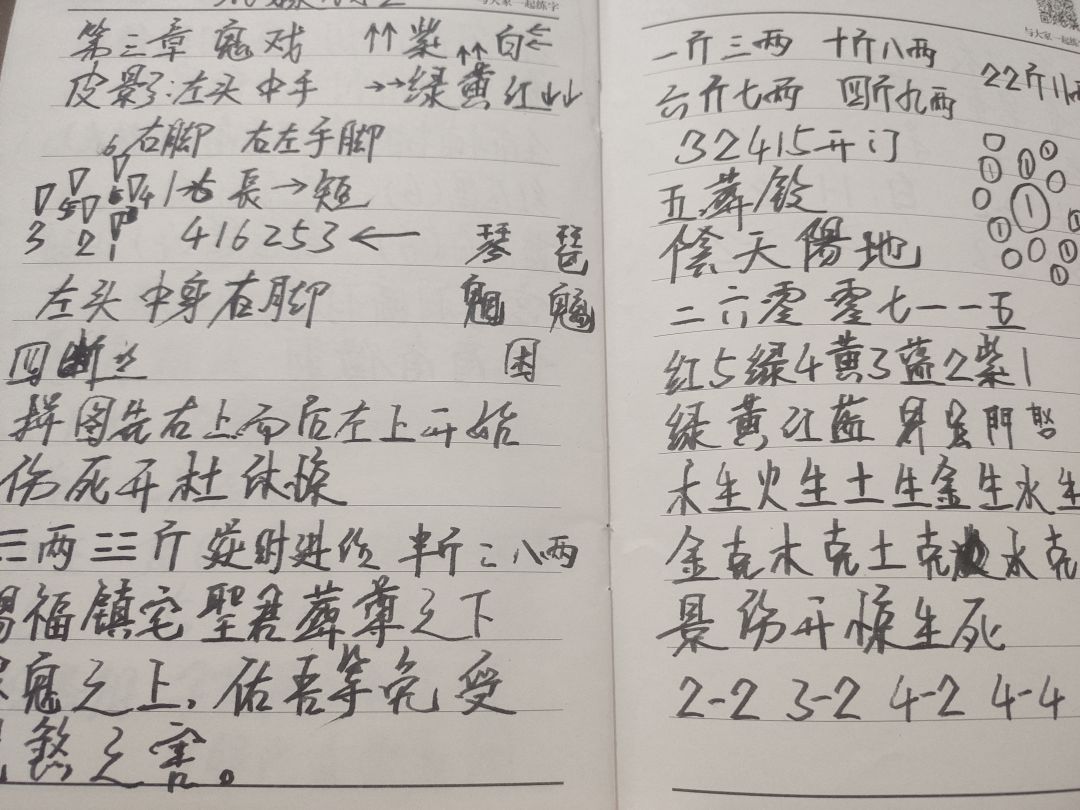 与大家一起练字
第三章 鬼戏 ↑↑紫↑↑白←←
皮影:左头中手 →→绿黄红↓↓
右脚 右左手脚
6
1→6 長→短
5 4
3 2 1 416253←
琴 琶
左头中身右脚 魍 魉
四断 困
拼图先右上而后左上开始
伤死开杜休惊
三两三三斤 时进 半斤=八两
福镇宅聖君葬尊之下
鬼之上,佑吾等免受
煞之害。
与大家一起练
一斤三两 十斤八两
六斤七两 四斤九两 22斤八两
32415开门
五葬铃
陰天陽地
二六零零七一一五
红5绿4黄3蓝2紫1
绿黄红蓝 門
木生火生土生金生水生
金克木克土克水克
景伤开惊生死
2-2 3-2 4-2 4-4